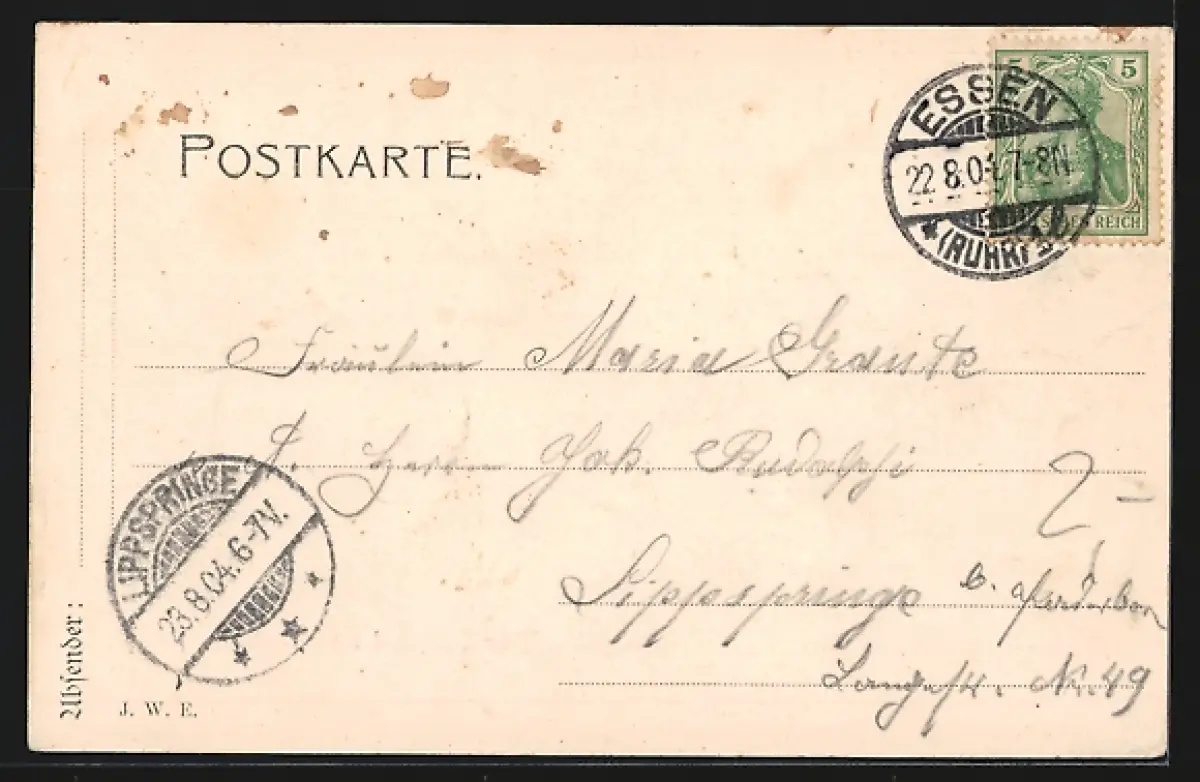 POSTKARTE.
5 5
ESSEN
22.8.04. 7-8N.
(RUHR)
REICH
Fräulein Maria Graute
Herrn Joh. Rudolphi
Lippspringe b. Paderborn
Langestr. Nr. 49
LIPPSPRINGE
23.8.04. 6-7N.
Absender:
J. W. E.